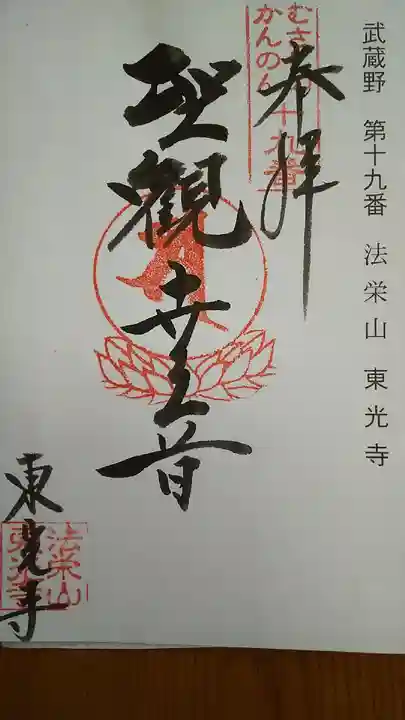 武蔵野 第十九番 法栄山 東光寺
奉拝
むさ
かんのん
十九番
聖觀世音
東光寺
法栄山